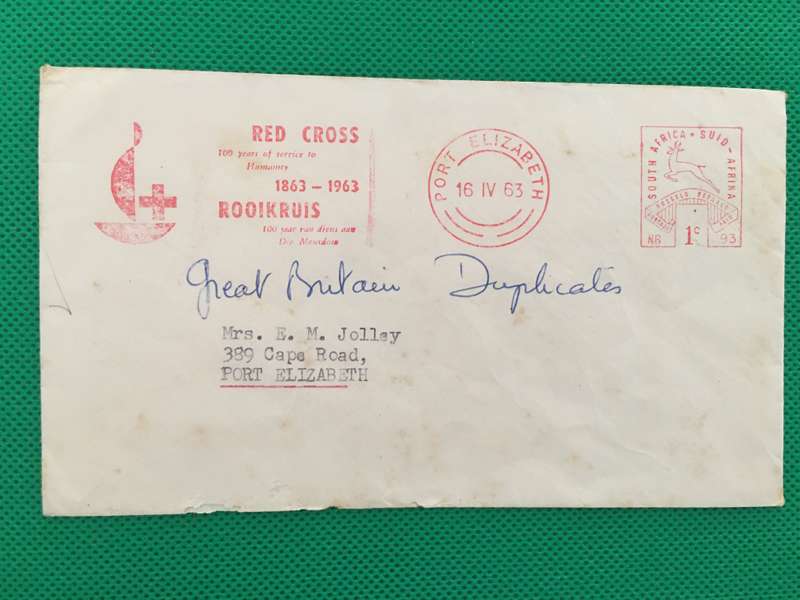 RED CROSS
100 years of service to
Humanity
1863 – 1963
ROOIKRUIS
100 jaar van diens aan
Die Mensdom
PORT ELIZABETH
16 IV 63
SOUTH AFRICA • SUID-AFRIKA
POSTAGE
NR 1c 93
Great Britain Duplicates
Mrs. E. M. Jolley
389 Cape Road,
PORT ELIZABETH